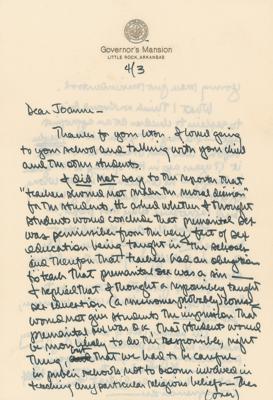 Governor's Mansion
LITTLE ROCK, ARKANSAS
4/3
Dear Joann -
Thanks for your letter. I loved going
to your school and talking with your child
and the other students.
I did not say to the reporter that
"teachers should not make the moral decision"
for the students. He asked whether I thought
students would conclude that premarital sex
was permissible from the very fact of sex
education being taught in the schools
and therefore that teachers had an obligation
to teach that premarital sex was a sin -
I replied that I thought a responsibly taught
sex education (a misnomer, probably) course
would not give students the impression that
premarital sex was o.k. that students would
be more likely to do the responsible, right
thing but that we had to be careful
in public schools not to become involved in
teaching any particular religious beliefs - the
(over)